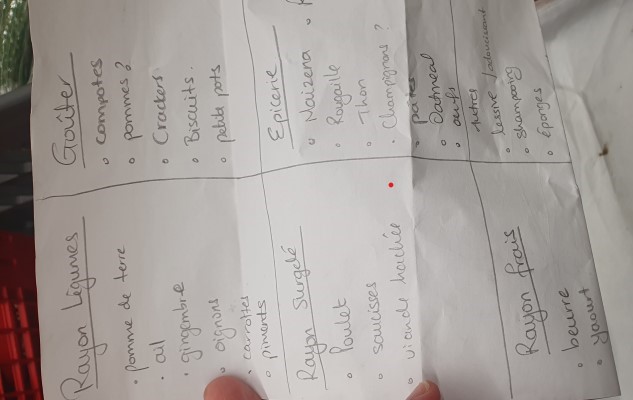 Rayon Légumes
• pomme de terre
• ail
• gingembre
• oignons
• carrottes
• piments
Goûter
• compotes
• pommes ?
• Crackers
• Biscuits.
• petits pots
Rayon Surgelé
• Poulet
• saucisses
• viande hachée
Epicerie
• Maizena
• Rougaille
• Thon
• Champignons ?
• pâtes
• Oatmeal
• oeufs
Autres
• lessive / adoucissant
• shampooing
• éponges
Rayon frais
• beurre
• yaourt